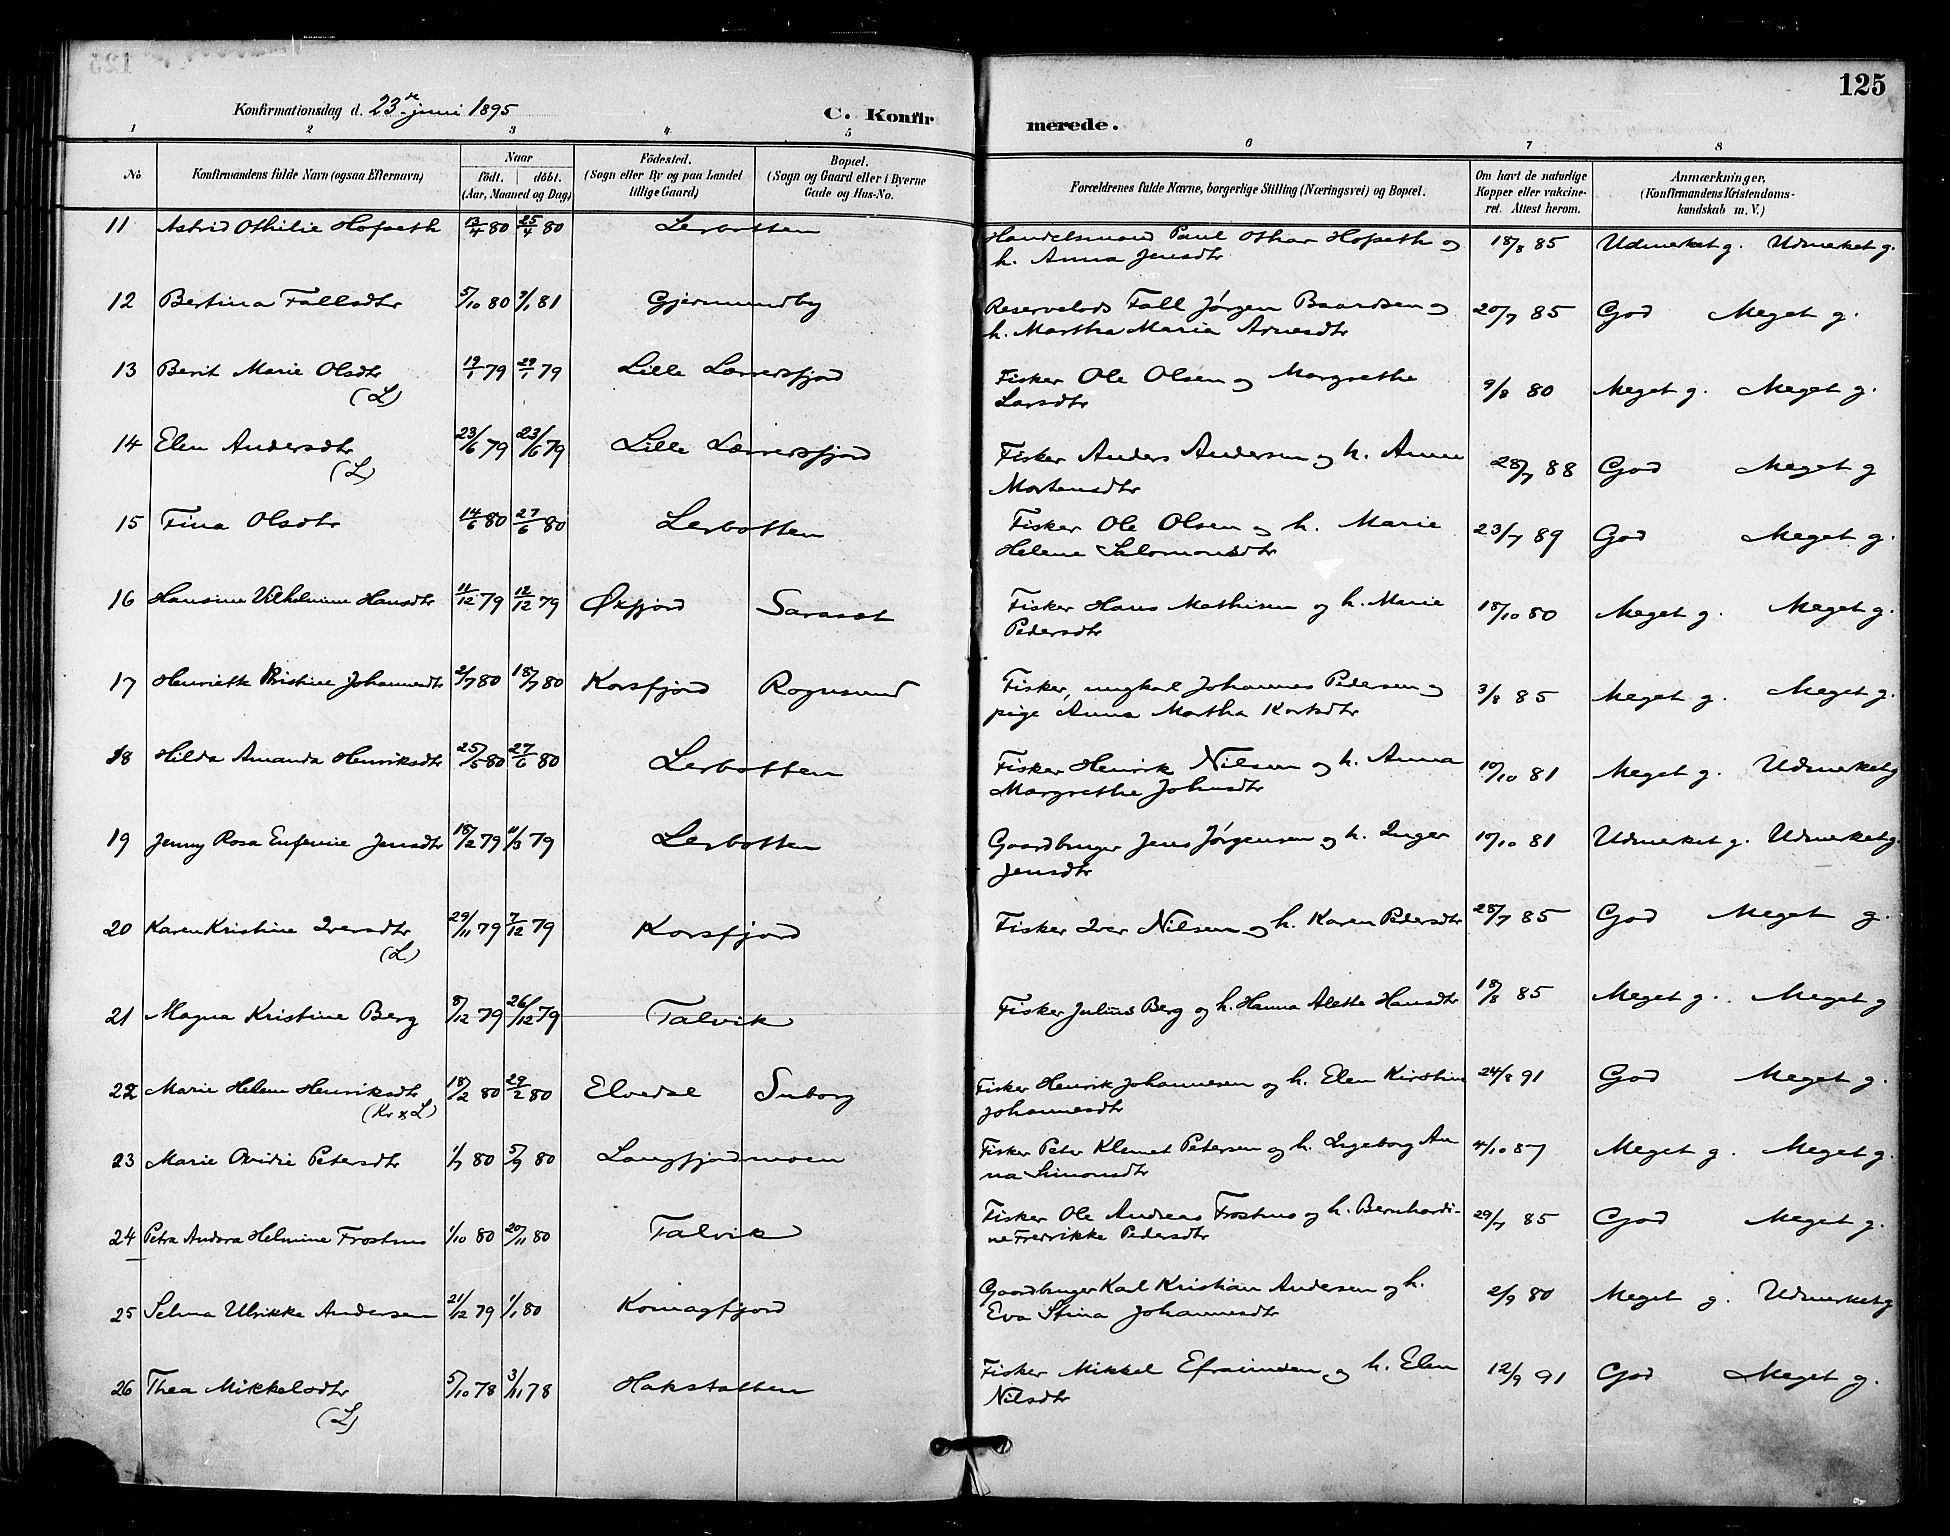 125
Konfirmationsdag d. 23de juni 1895
C. Konfirmerede.
1 2 3 4 5 6 7 8
No. Konfirmandens fulde Navn (ogsaa Efternavn) Naar födt. döbt. (Aar, Maaned og Dag) Födested. (Sogn eller By og paa Landet tillige Gaard) Bopæl. (Sogn og Gaard eller i Byerne Gade og Hus-No. Forældrenes fulde Navne, borgerlige Stilling (Næringsvei) og Bopæl. Om havt de naturlige Kopper eller vakcineret. Attest herom. Anmærkninger, (Konfirmandens Kristendomskundskab m. V.)
11 Astrid Othilie Hofseth 13/4 80 25/4 80 Lerbotten Handelsmand Paul Othar Hofseth og 18/8 85 Udmerket g. Udmerket g.
h. Anna Jensdtr
12 Bertina Fallsdtr 5/10 80 9/1 81 Gjermundby Reservelods Fall Jórgen Baardsen og 20/7 85 God Meget g.
h. Martha Maria Arnesdtr
13 Berit Marie Olsdtr 19/1 79 29/1 79 Lille Lerresfjord Fisker Ole Olsen og Margrethe 9/8 80 Meget g. Meget g.
(L) Larsdtr
14 Elen Andersdtr 23/6 79 23/6 79 Lille Lerresfjord Fisker Anders Andersen og h. Anne 28/7 88 God Meget g
(L) Mortensdtr
15 Fina Olsdtr 14/6 80 27/6 80 Lerbotten Fisker Ole Olsen og h. Marie 23/7 89 God Meget g.
Helene Salomonsdtr
16 Hansine Vilhelmine Hansdtr 11/12 79 12/12 79 Øxfjord Saraset Fisker Hans Mathisen og h. Marie 18/10 80 Meget g. Meget g.
Pedersdtr
17 Henriette Kristine Johannesdtr 2/7 80 18/7 80 Korsfjord Rognsund Fisker, ungkarl Johannes Pedersen og 3/8 85 Meget g. Meget g.
pige Anna Martha Kortsdtr
18 Hilda Amanda Henriksdtr 25/5 80 27/6 80 Lerbotten Fisker Henrik Nilsen og h. Anna 10/10 81 Meget g. Udmerket g
Margrethe Johnsdtr
19 Jenny Rosa Enfemie Jensdtr 18/2 79 11/3 79 Lerbotten Gaardbruger Jens Jórgensen og h. Inger 10/10 81 Udmerket g. Udmerket g.
Jensdtr
20 Karen Kristine Iversdtr 29/11 79 7/12 79 Korsfjord Fisker Iver Nilsen og h. Karen Pedersdtr 28/7 85 God Meget g.
(L)
21 Magna Kristine Berg 8/12 79 26/12 79 Talvik Fisker Julius Berg og h. Hanna Alette Hansdtr 18/8 85 Meget g. Meget g
22 Marie Helene Henriksdtr 18/2 80 29/2 80 Elvedal Suborg Fisker Henrik Johannesen og h. Elen Kirstine 24/8 91 God Meget g.
(Kr x L) Johannesdtr
23 Marie Ovidie Petersdtr 1/7 80 5/9 80 Langfjordmoen Fisker Peter Klemet Petersen og h. Ingeborg An 4/10 87 Meget g. Meget g.
na Simonsdtr
24 Petra Andora Helmine Frostmo 1/10 80 20/11 80 Talvik Fisker Ole Andreas Frostmo og h. Bernhardi- 29/7 85 God Meget g.
ne Fredrikke Pedersdtr
25 Selma Ulrikke Andersen 21/12 79 1/1 80 Komagfjord Gaardbruger Karl Kristian Andersen og h. 2/9 80 Meget g. Udmerket g
Eva Stina Johannesdtr
26 Thea Mikkelsdtr 5/10 78 3/11 78 Hakstabben Fisker Mikkel Efraimsen og h. Elen 12/9 91 God Meget g.
(L) Nilsdtr